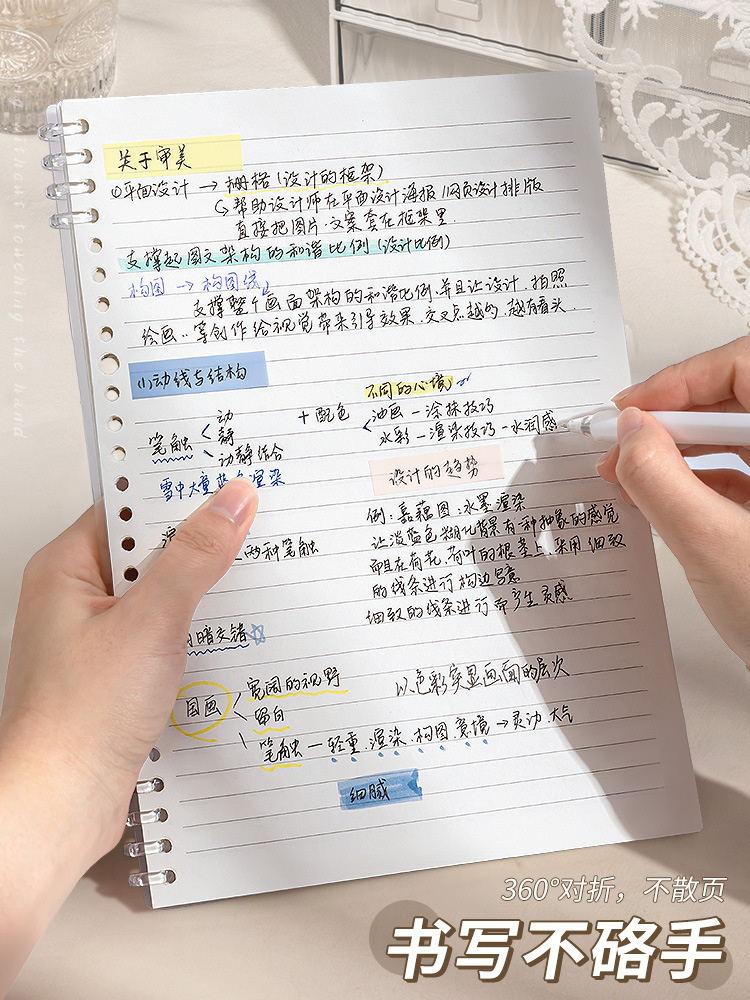 关于审美
①平面设计 → 栅格(设计的框架)
↳帮助设计师在平面设计海报/网页设计排版
直接把图片.文案套在框架里.
支撑起图文架构的和谐比例(设计比例)
构图 → 构图线
支撑整个画面架构的和谐比例.并且让设计.拍照
绘画..等创作给视觉带来引导效果.交叉点越多.越有看头.
(1)动线与结构
不同的心境
笔触 < 动
静
动静结合
+配色
油画 - 涂抹技巧
水彩 - 渲染技巧 - 水润感
雪中大量蓝色渲染
设计的趋势
两种笔触
例:嘉藕图:水墨渲染
让淡蓝色糊化背景有一种抽象的感觉
而且在荷花.荷叶的根茎上.采用细致
的线条进行构边写意
细致的线条进行而产生灵感
暗交错☆
国画 < 宽阔的视野
留白
笔触 - 轻重.渲染.构图.意境 → 灵动.大气
以色彩突显画面的层次
细腻
360°对折，不散页
书写不硌手